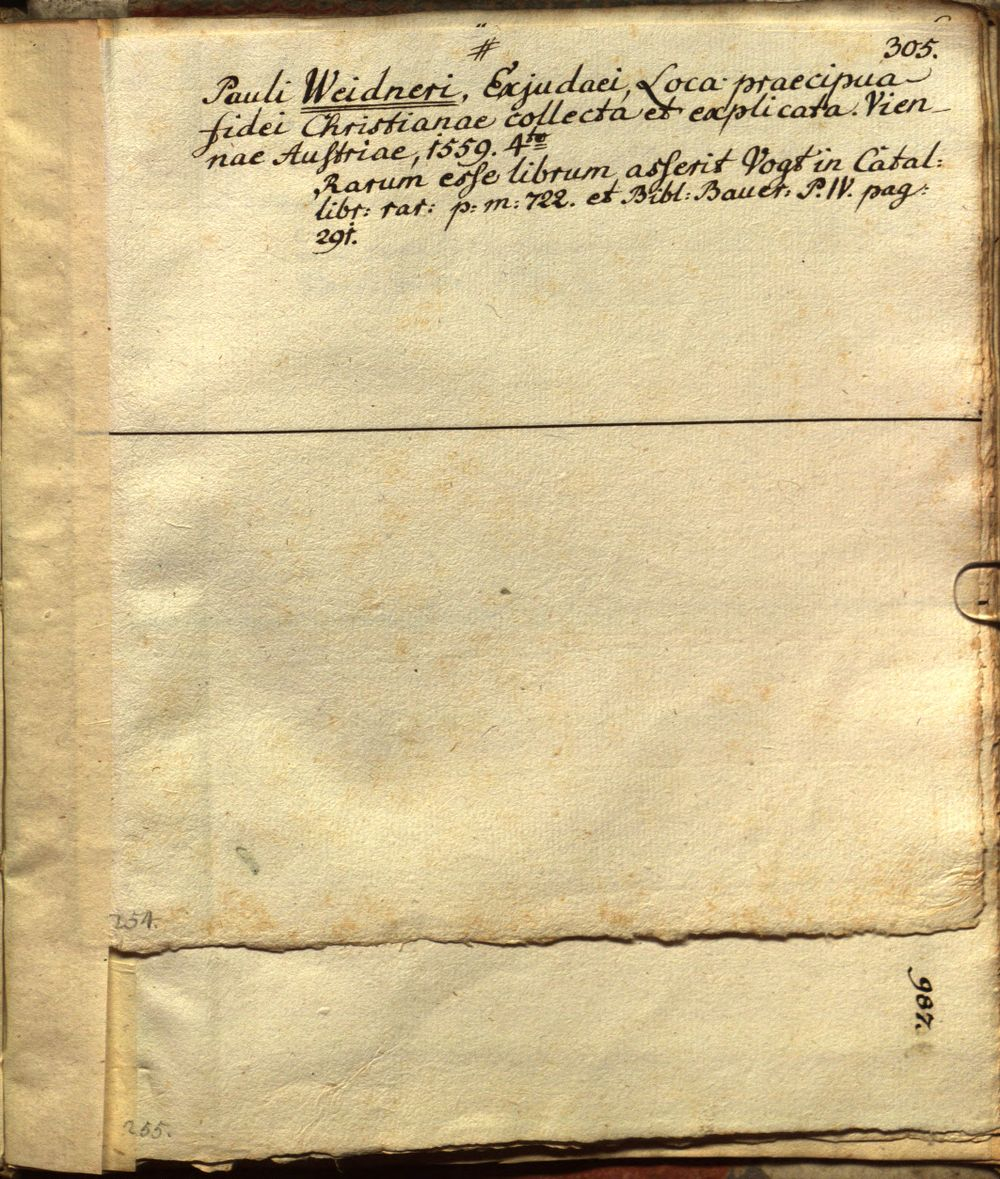 #
305.
Pauli Weidneri, Exjudaei, Loca praecipua
fidei Christianae collecta et explicata. Vien-
nae Austriae, 1559. 4to
Rarum esse librum, asserit Vogt in Catal:
libr: rar: p: m: 722. et Bibl: Bauer: P. IV. pag:
291.
254.
987.
255.